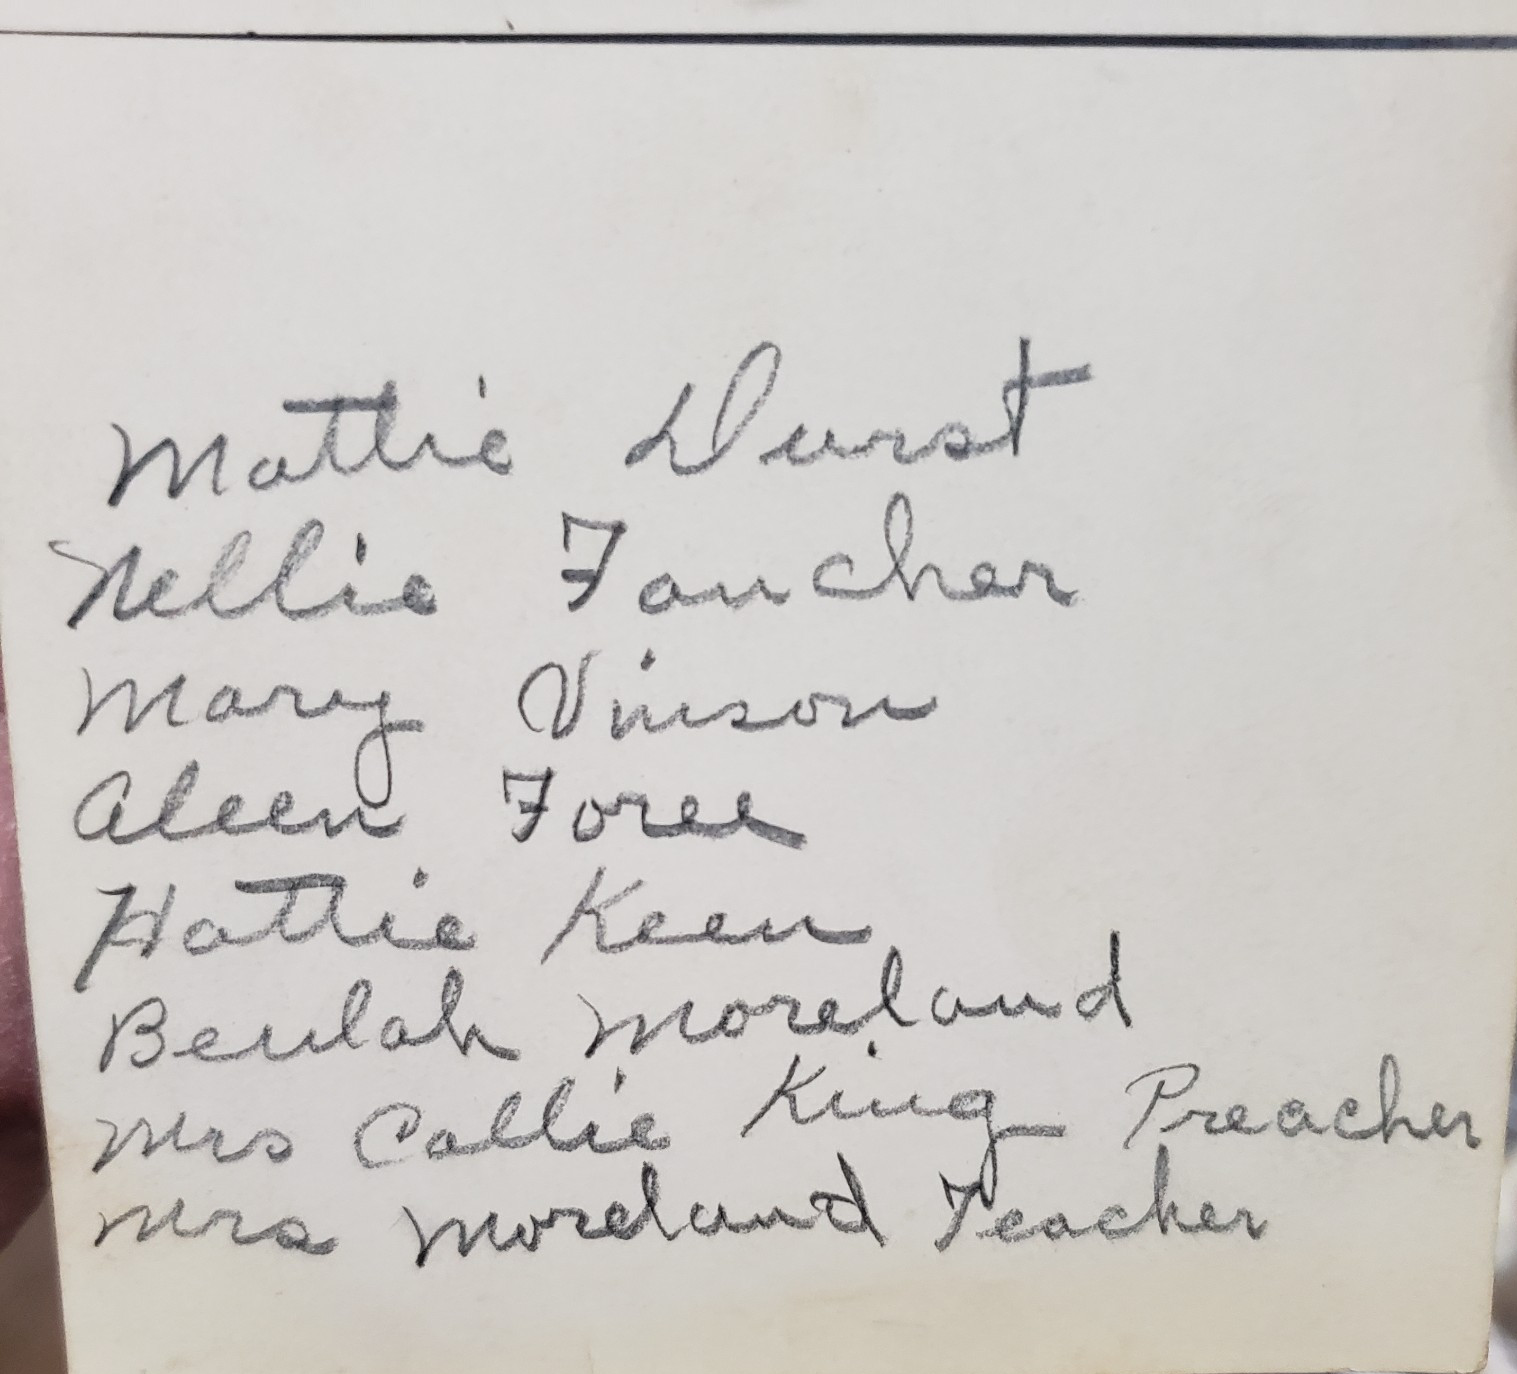 Mattie Durst
Nellie Faucher
Mary Vinson
Aleen Foree
Hattie Keen
Beulah Moreland
Mrs Callie King Preacher
Mrs Moreland Teacher